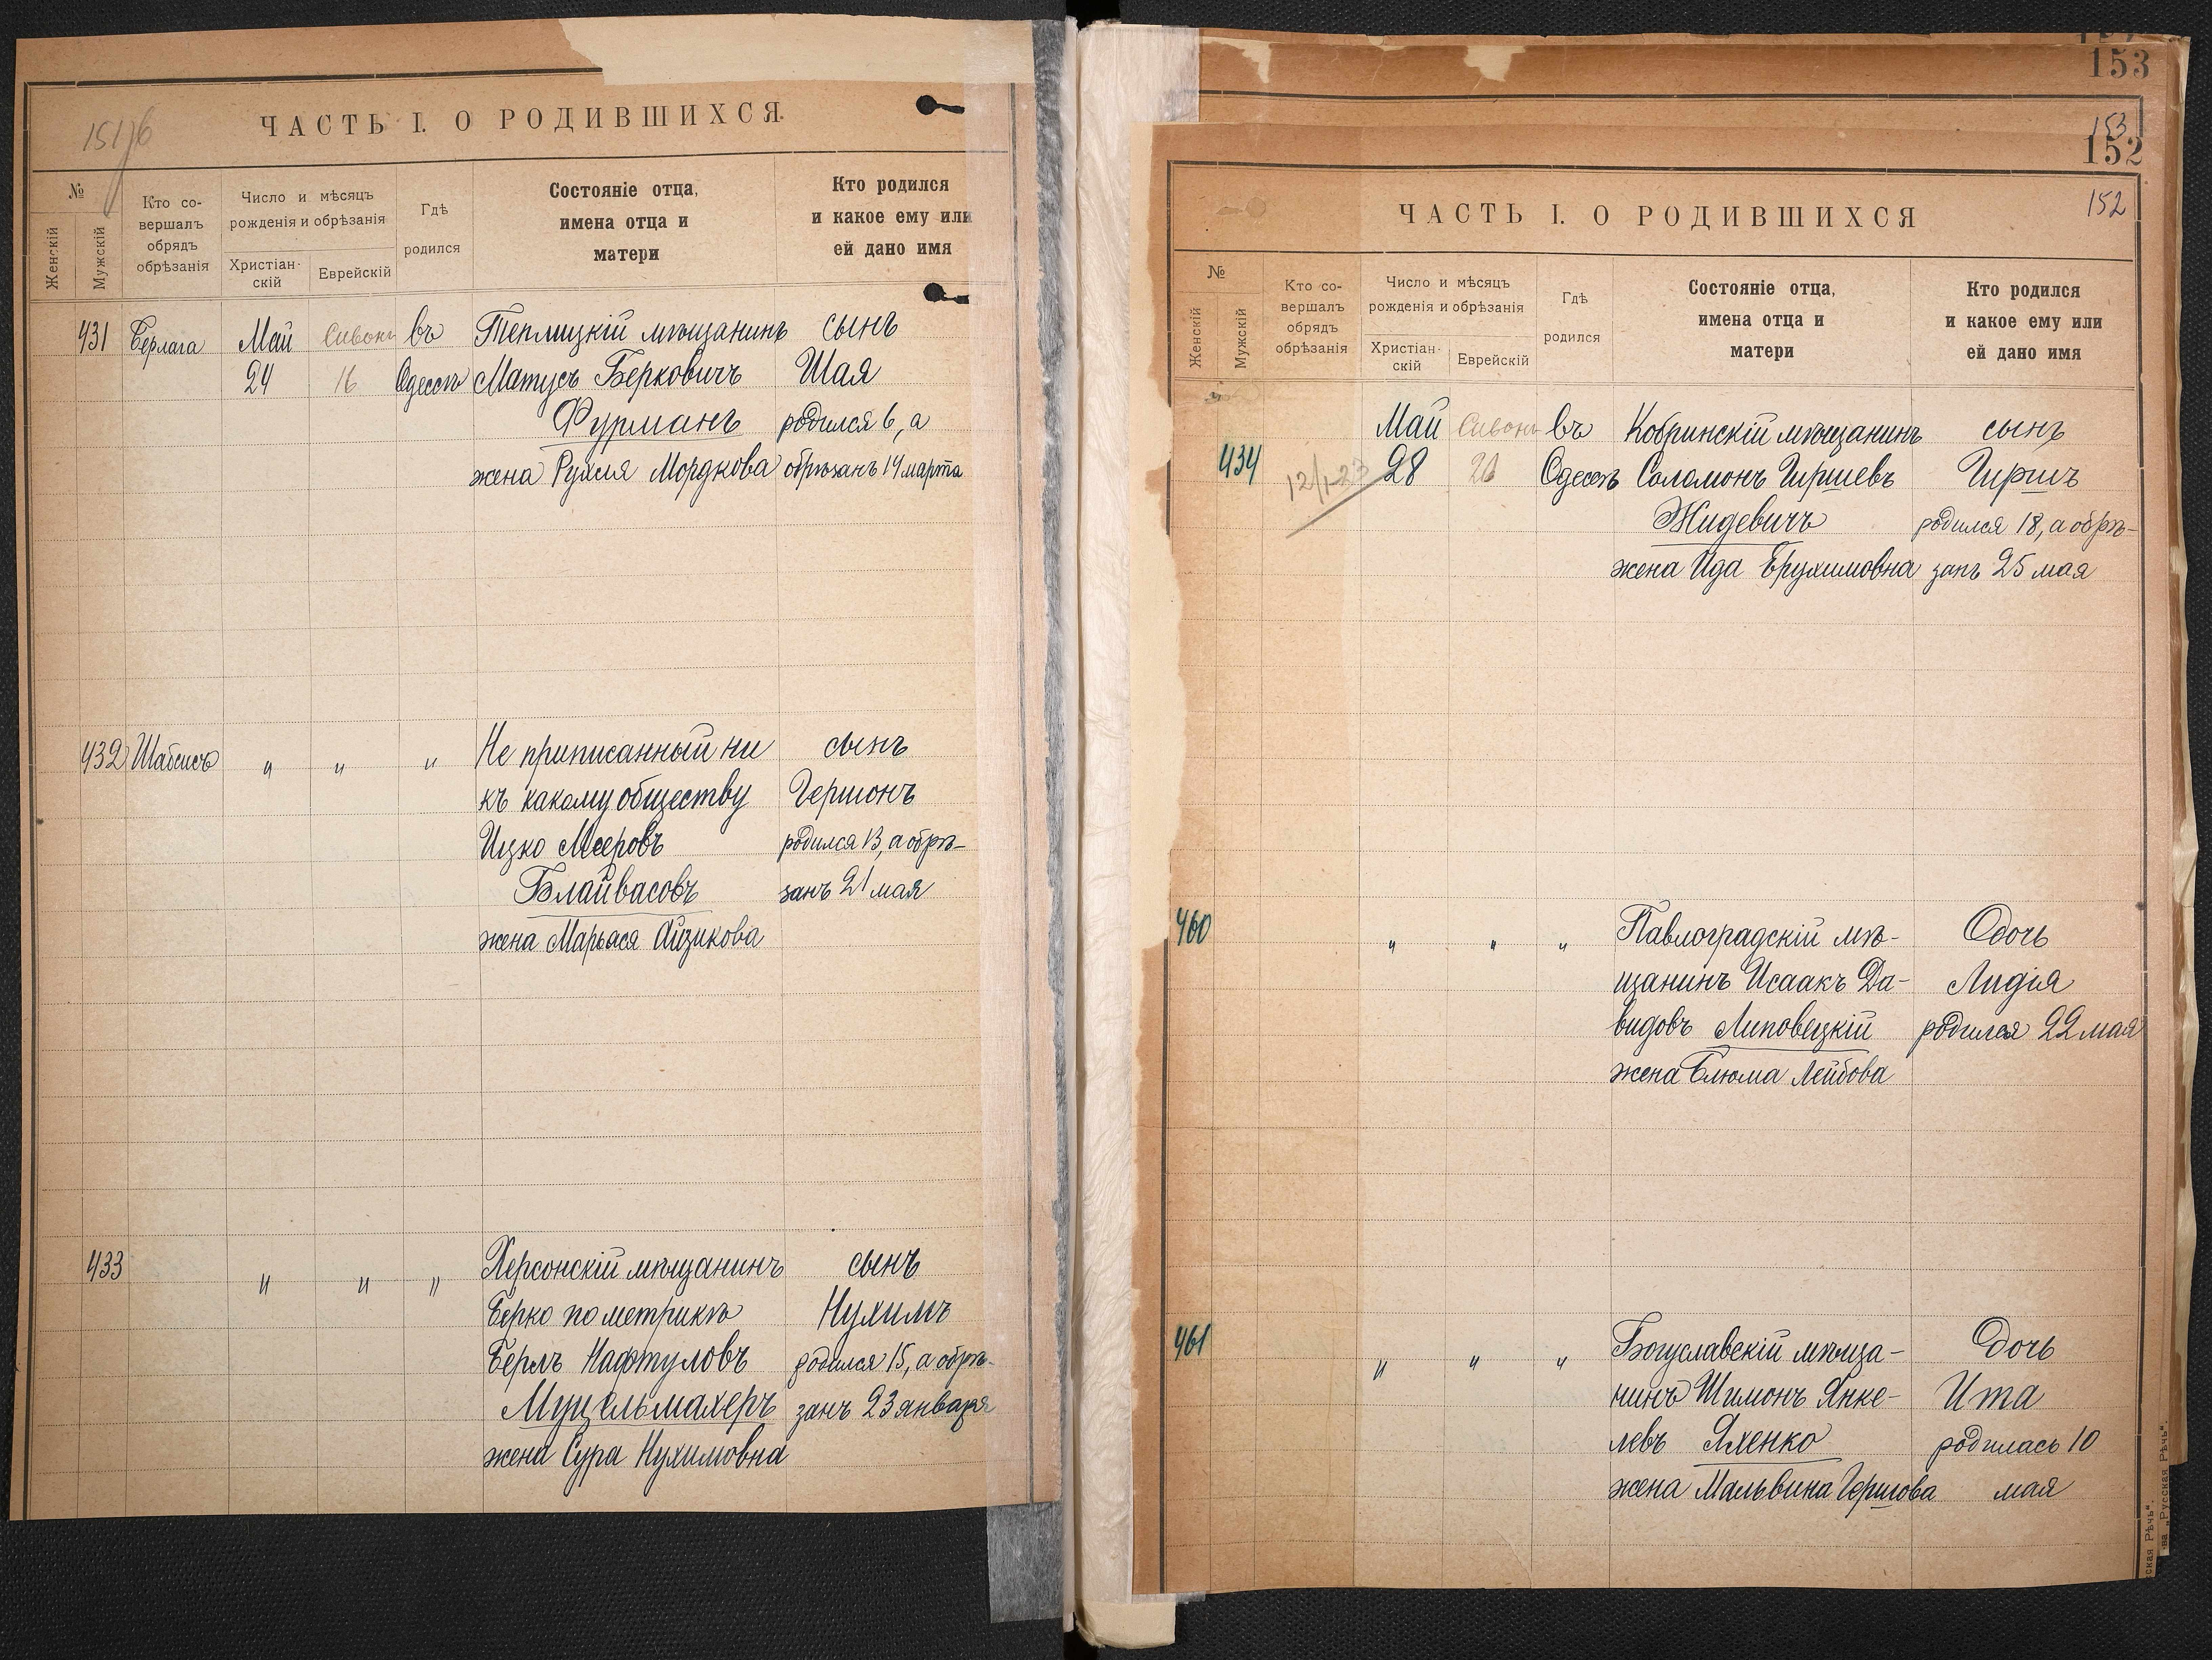 151 об
ЧАСТЬ I. О РОДИВШИХСЯ.
№
Женскій
Мужскій
Кто со-
вершалъ
обрядъ
обрѣзанія
Число и мѣсяцъ
рожденія и обрѣзанія
Христіан-
скій
Еврейскій
Гдѣ
родился
Состояніе отца,
имена отца и
матери
Кто родился
и какое ему или
ей дано имя
431 Берлага Май Сивонъ въ Теплицкій мѣщанинъ сынъ
24 16 Одессѣ Матусъ Берковичъ Шая
Фурманъ родился 6, а
жена Рухля Мордкова обрѣзанъ 14 марта
432 Шабсисъ " " " Не приписанный ни сынъ
къ какому обществу Гершонъ
Ицко Мееровъ родился 13, а обрѣ-
Блайвасовъ занъ 21 мая
жена Марьяся Айзикова
433 " " " Херсонскій мѣщанинъ сынъ
Берко по метрикѣ Нухимъ
Берлъ Нафтуловъ родился 15, а обрѣ-
Муцельмахеръ занъ 23 января
жена Сура Нухимовна
153
153
152
152
ЧАСТЬ I. О РОДИВШИХСЯ
№
Женскій
Мужскій
Кто со-
вершалъ
обрядъ
обрѣзанія
Число и мѣсяцъ
рожденія и обрѣзанія
Христіан-
скій
Еврейскій
Гдѣ
родился
Состояніе отца,
имена отца и
матери
Кто родился
и какое ему или
ей дано имя
Май Сивонъ въ Кобринскій мѣщанинъ сынъ
434 28 20 Одессѣ Соломонъ Гиршевъ Гиршъ
Жидевичъ родился 18, а обрѣ-
жена Ида Ерухимовна занъ 25 мая
460 " " " Павлоградскій мѣ- Дочь
щанинъ Исаакъ Да- Лидія
видовъ Липовецкій родился 22 мая
жена Блюма Лейбова
461 " " " Богуславскій мѣща- Дочь
нинъ Шимонъ Янке- Ита
левъ Яхенко родилась 10
жена Мальвина Гершова мая
ская Рѣчь".
ва „Русская Рѣчь".